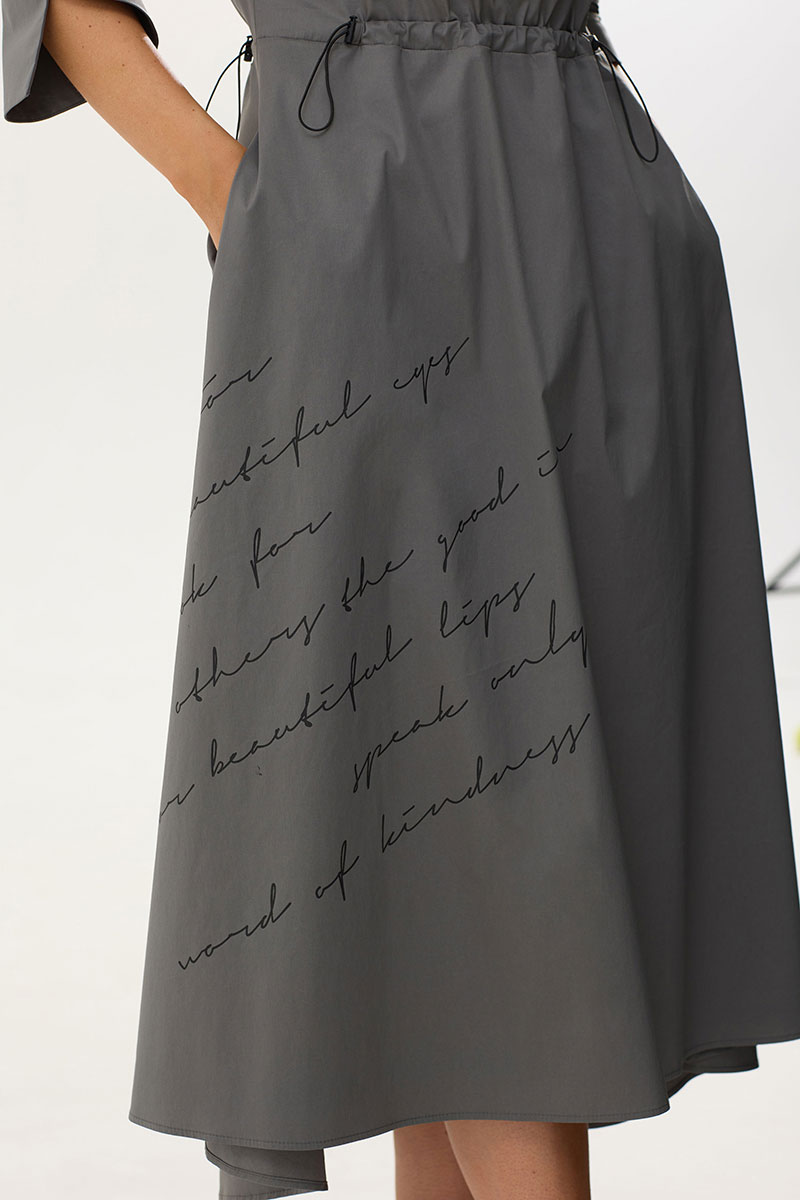 for
autiful eyes
ok for
others the good i
r beautiful lips
speak only
word of kindness